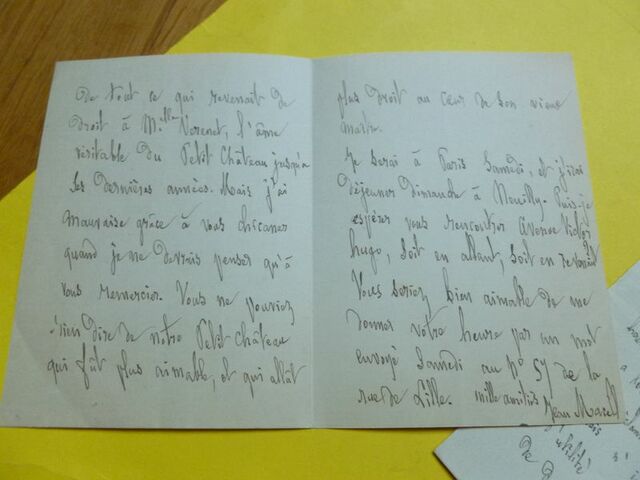 de tout ce qui revenait de
droit à M.elle Verenet, l'âme
véritable du Petit Château jusqu'à
ses dernières années. Mais j'ai
mauvaise grâce à vous chicaner
quand je ne devrais penser qu'à
vous remercier. Vous ne pouviez
rien dire de notre Petit Château
qui fût plus aimable, et qui allât
plus droit au cœur de son vieux
maître.
Je serai à Paris Samedi, et j'irai
déjeuner Dimanche à Neuilly. Puis-je
espérer vous rencontrer Avenue Victor
hugo, soit en allant, soit en revenant
Vous seriez bien aimable de me
donner votre heure par un mot
envoyé Samedi au n° 57 de la
rue de Lille. mille amitiés
Jean Macé
utilité
de